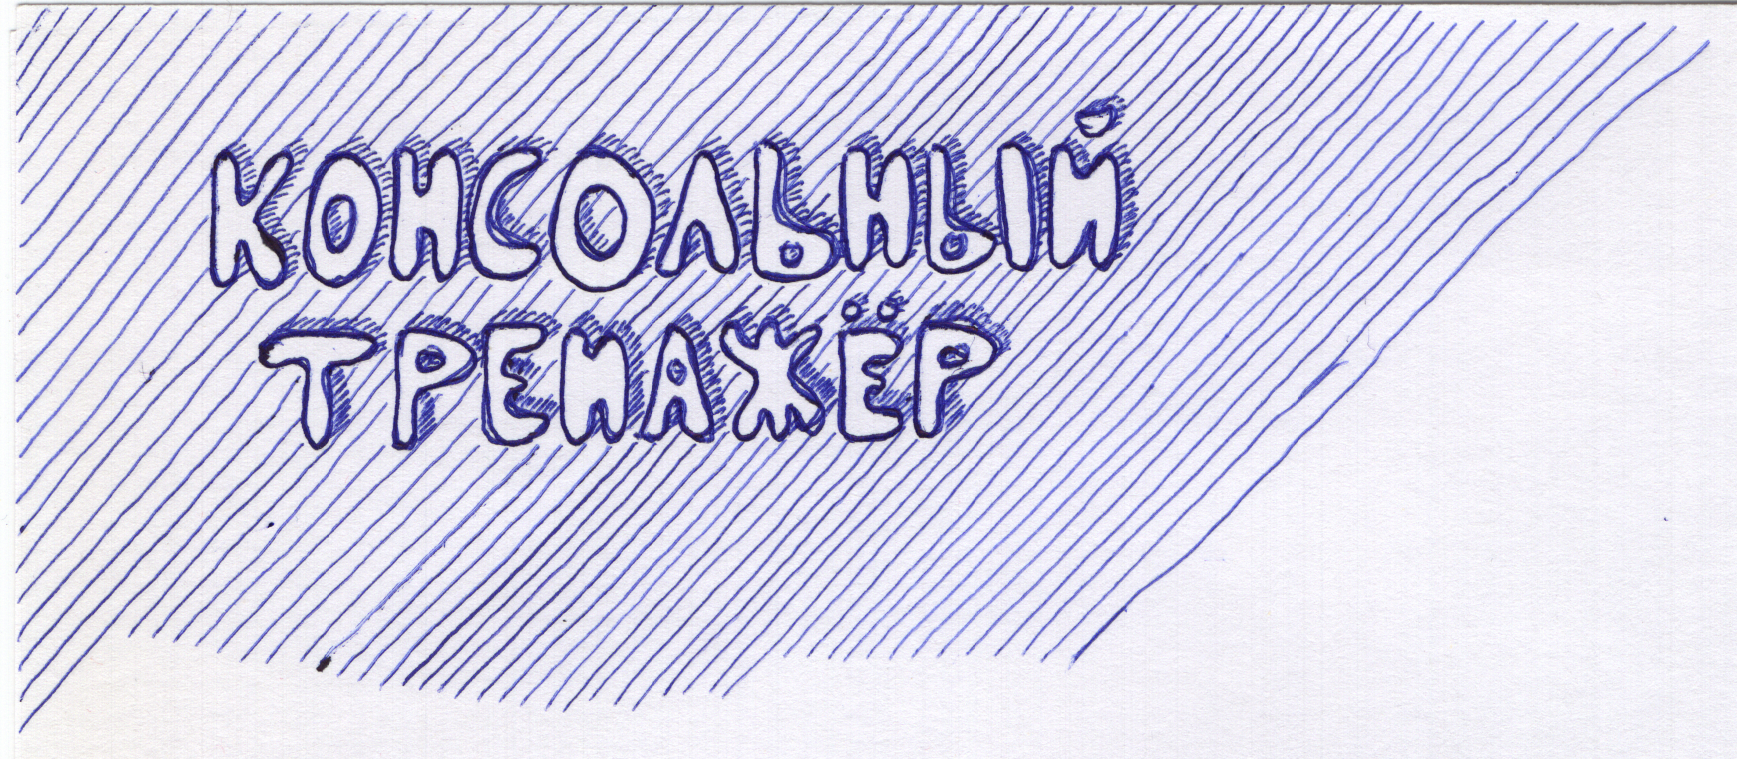 КОНСОЛЬНЫЙ
ТРЕНАЖЁР